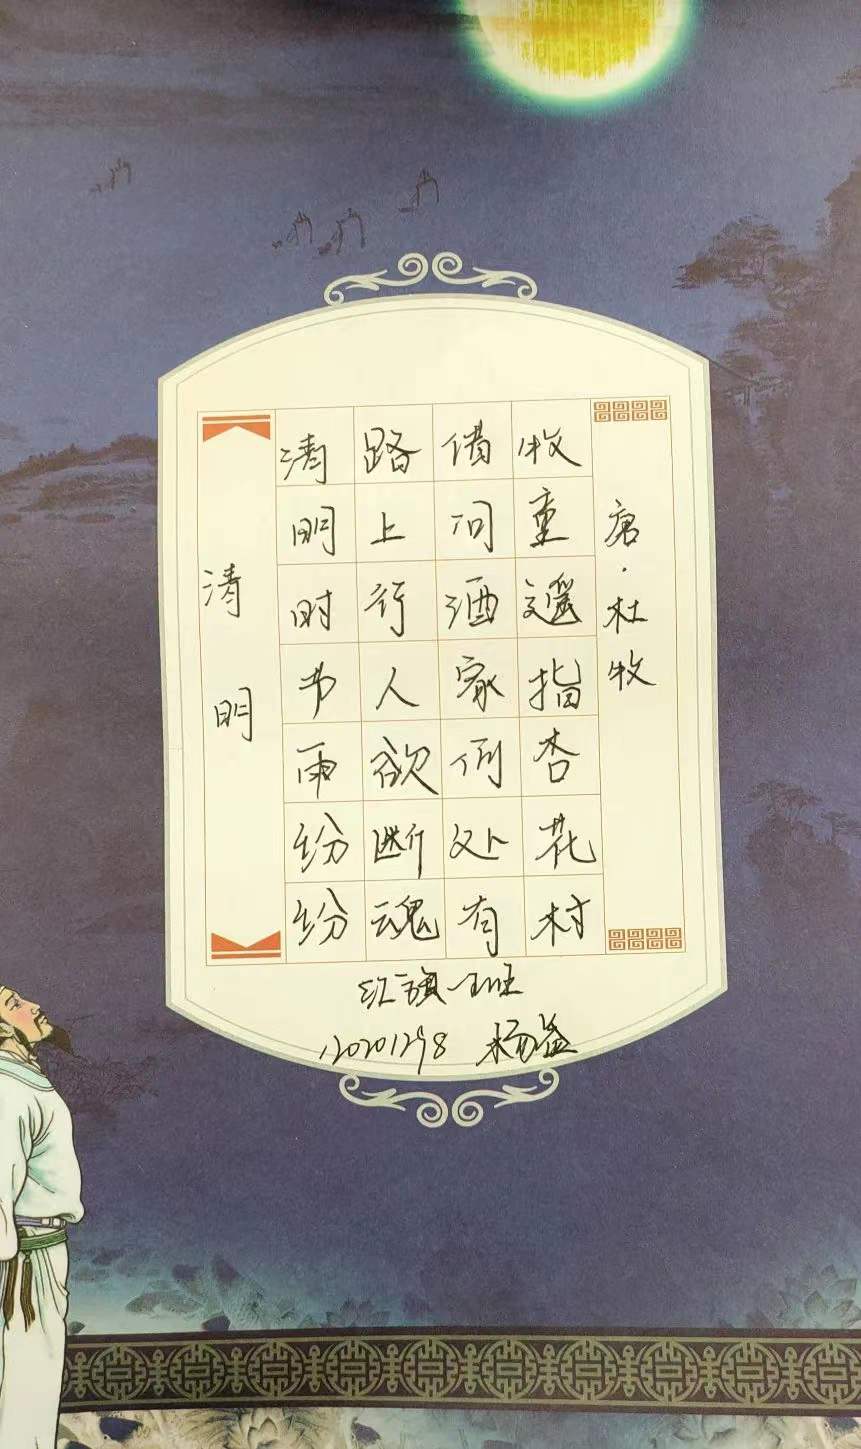 清明
清明时节雨纷纷
路上行人欲断魂
借问酒家何处有
牧童遥指杏花村
唐·杜牧
红旗一班
杨